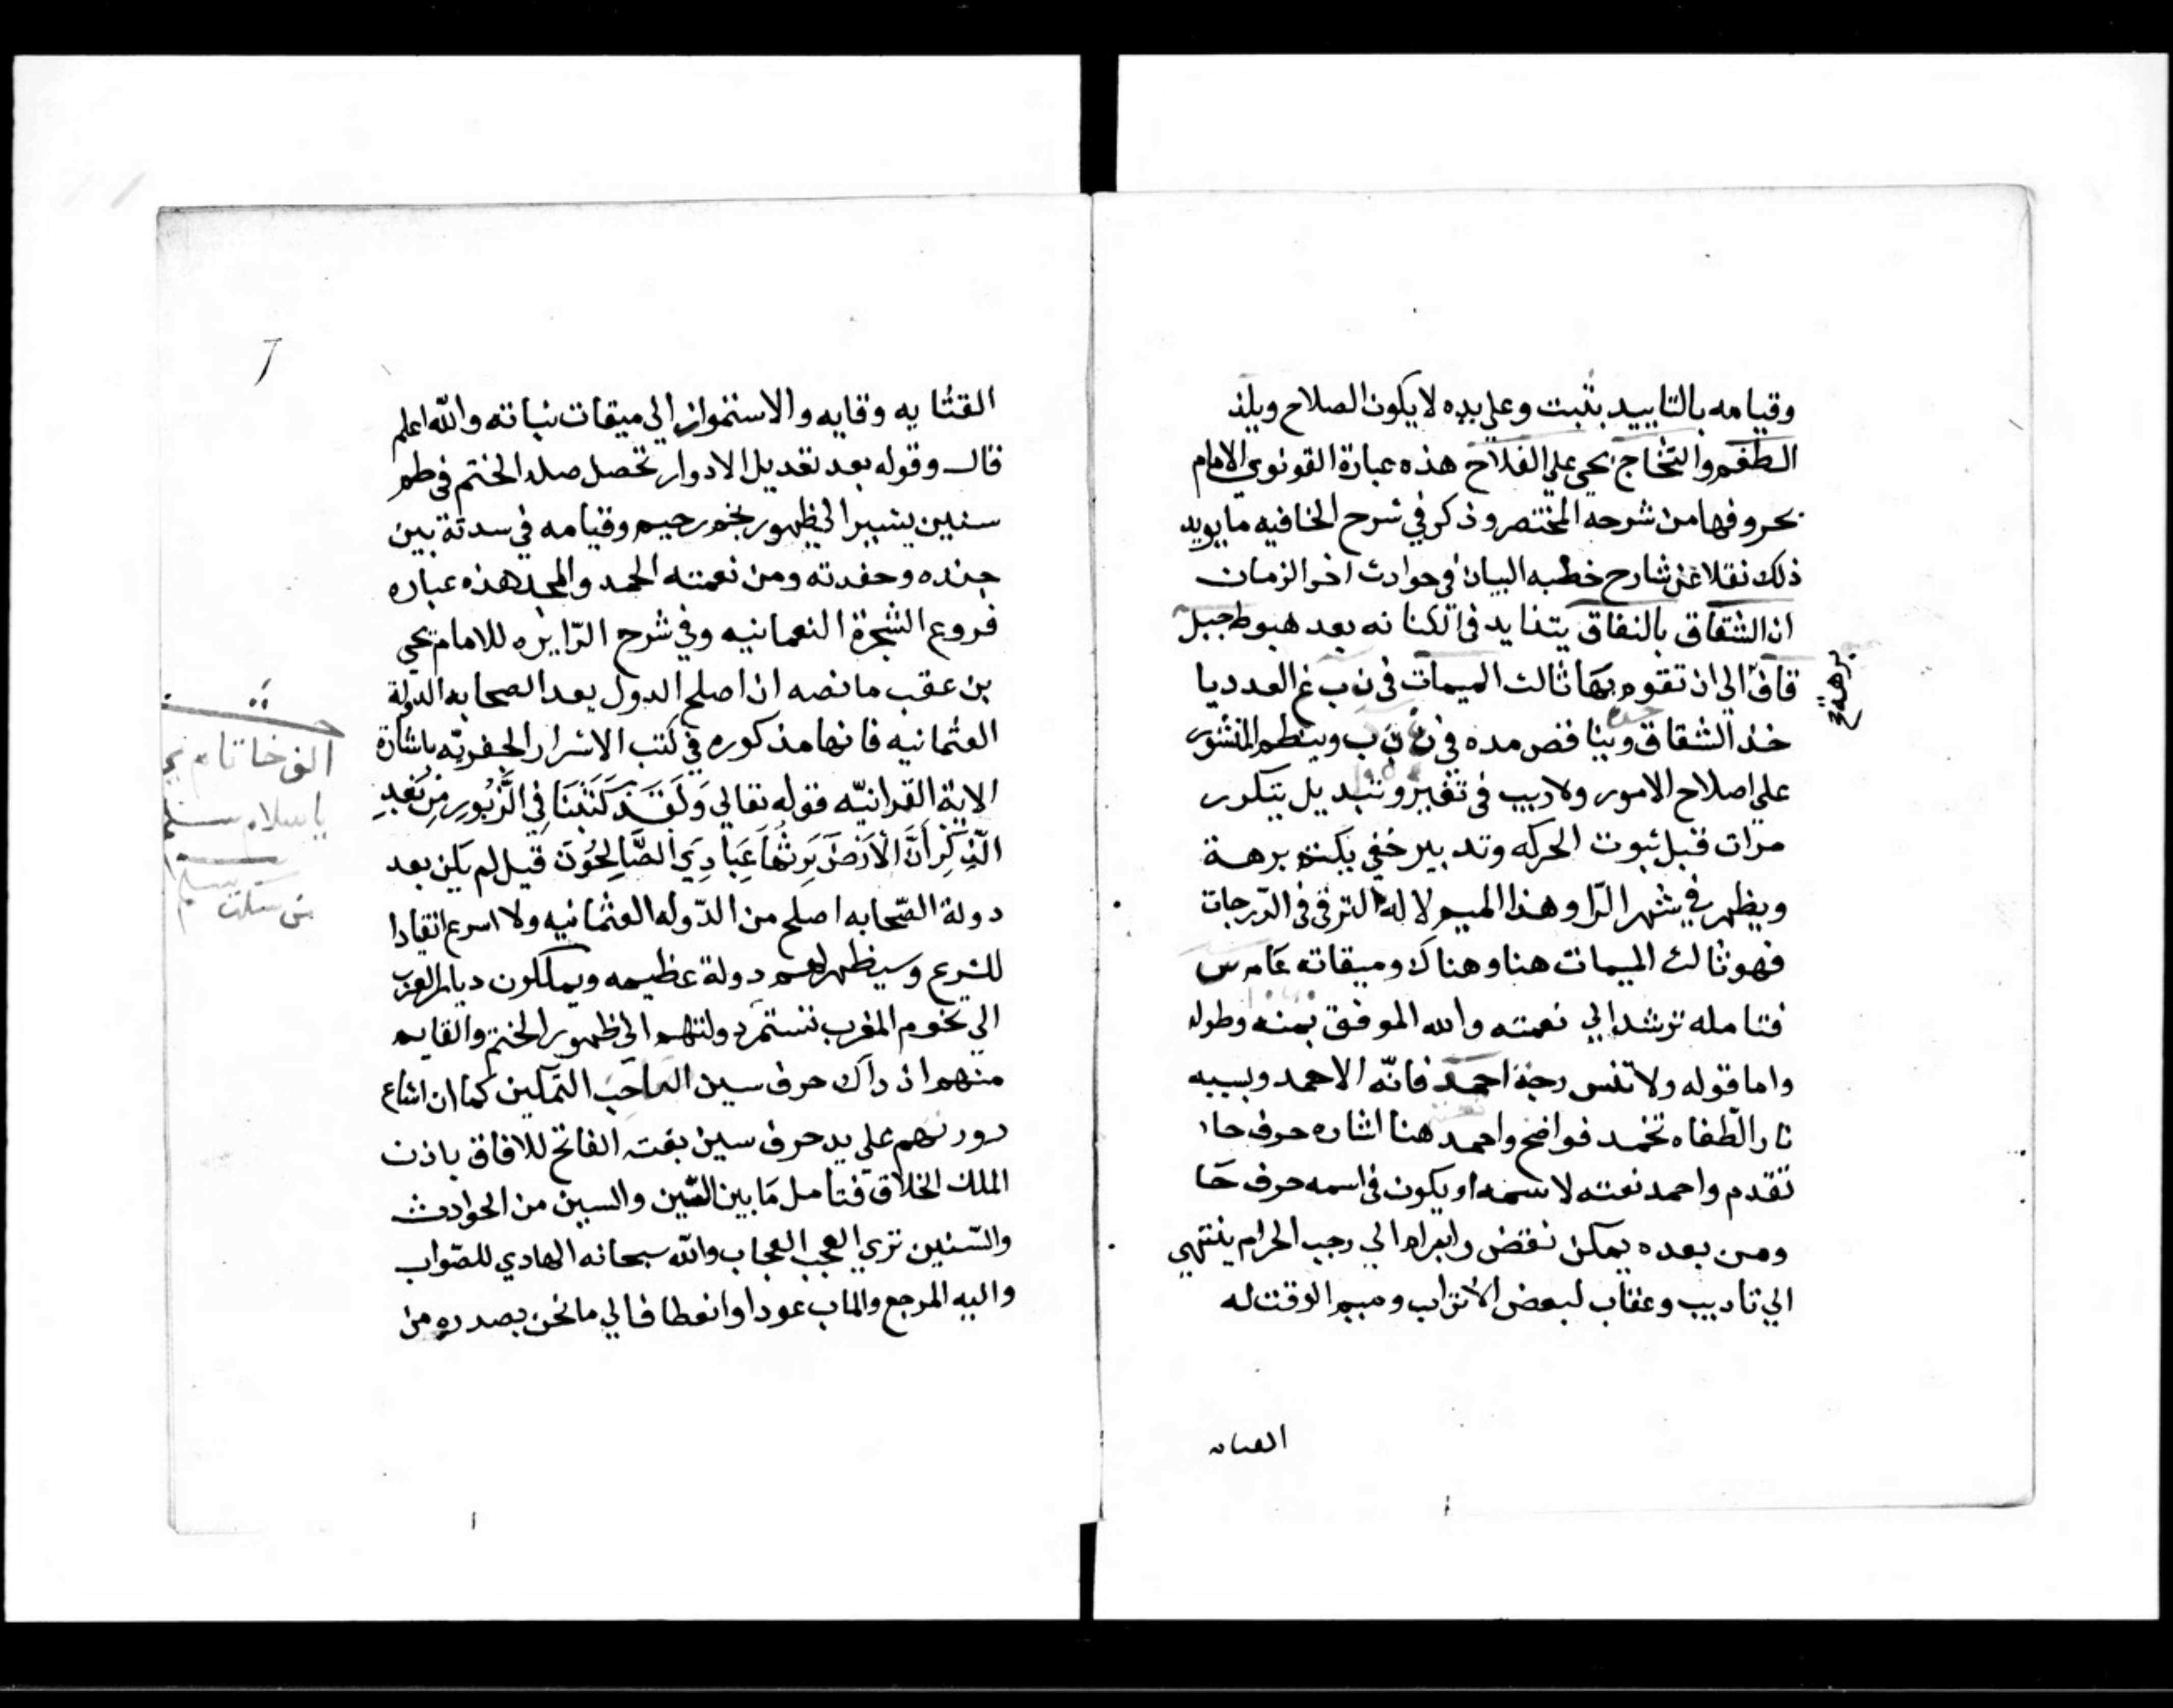 وقيامه بالتاييد يثبت وعلي يده لا يكون الصلاح ويلذ
الطغم والتخاج بحي علي الفلاح هذه عبارة القونوي الامام
بحروفها من شرحه المختصر وذكر في شرح الخافيه ما يويد
ذلك نقلا عن شارح خطبه البيان في حوادث اخر الزمان
ان الشقاق بالنفاق يتزايد في الكنانه بعد هبوط جبل
قاف الي ان تقوم بها ثالث الميمات في ن ب غ العدد يا
خذ الشقاق ويناقص مده في ب وينظم المنثور
علي اصلاح الامور ولاريب في تغير وتبديل يتكرر
مرات قبل ثبوت الحركه وتدبير خفي يكنه برهة
ويظهر في شهر الرا وهذا الميم لا له الترقي في الدرجات
فهو ثالث الميمات هنا وهناك وميقاته عام س
فتامله ترشد الي نعمته والله الموفق بمنه وطوله
واما قوله ولا تنس رجة احمد فانه الاحمد وبسببه
نار الطفاه تخمد فواضح واحمد هنا اشاره حرف حا
تقدم واحمد نعته لا سمه او يكون في اسمه حرف حا
ومن بعده يمكن نقض وابرام الي رجب الحرام ينتهي
الي تاديب وعقاب لبعض الاتراب وميم الوقت له
برهة صح
العنايه
القتايه وقايه والاستمرار الي ميقات ثباته والله اعلم
قال وقوله بعد تعديل الادوار تحصل صله الختم في طم
سنين يشير الي ظهور بختم رحيم وقيامه في سدته بين
جنده وحفدته ومن نعمته الحمد والمجد هذه عباره
فروع الشجرة النعمانيه وفي شرح الزايره للامام يحي
بن عقب ما نصه ان اصلح الدول بعد الصحابه الدولة
العثمانيه فانها مذكوره في كتب الاسرار الجفريه باشارة
الاية القرانيه فقوله تعالي وَلَقَد كَتَبنَا فِي الزَّبُورِ مِن بَعدِ
الذِّكرِ أَنَّ الأَرضَ يَرِثُهَا عِبَادِيَ الصَّالِحُونَ قيل لم يكن بعد
دولة الصحابه اصلح من الدوله العثمانيه ولا اسرع انقادا
للشرع وسيظهر لهم دولة عظيمه ويملكون ديار العرب
الي تخوم المغرب تستمر دولتهم الي ظهور الختم والقايم
منهم اذ ذاك حرف سين الصاحب التمكين كما ان اشاع
دورتهم علي يد حرف سين بفته الفاتح للافاق باذن
الملك الخلاق فتامل ما بين الشين والسين من الحوادث
والسنين تري العجب العجاب والله سبحانه الهادي للصواب
واليه المرجع والماب عودا وانعطافا الي ما نحن بصدده من